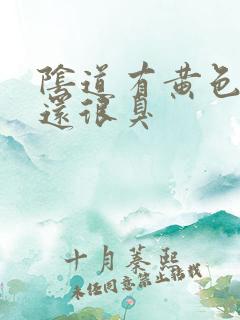 陰道有黃色
還很臭
十月蓁熙
未经同意禁止转载